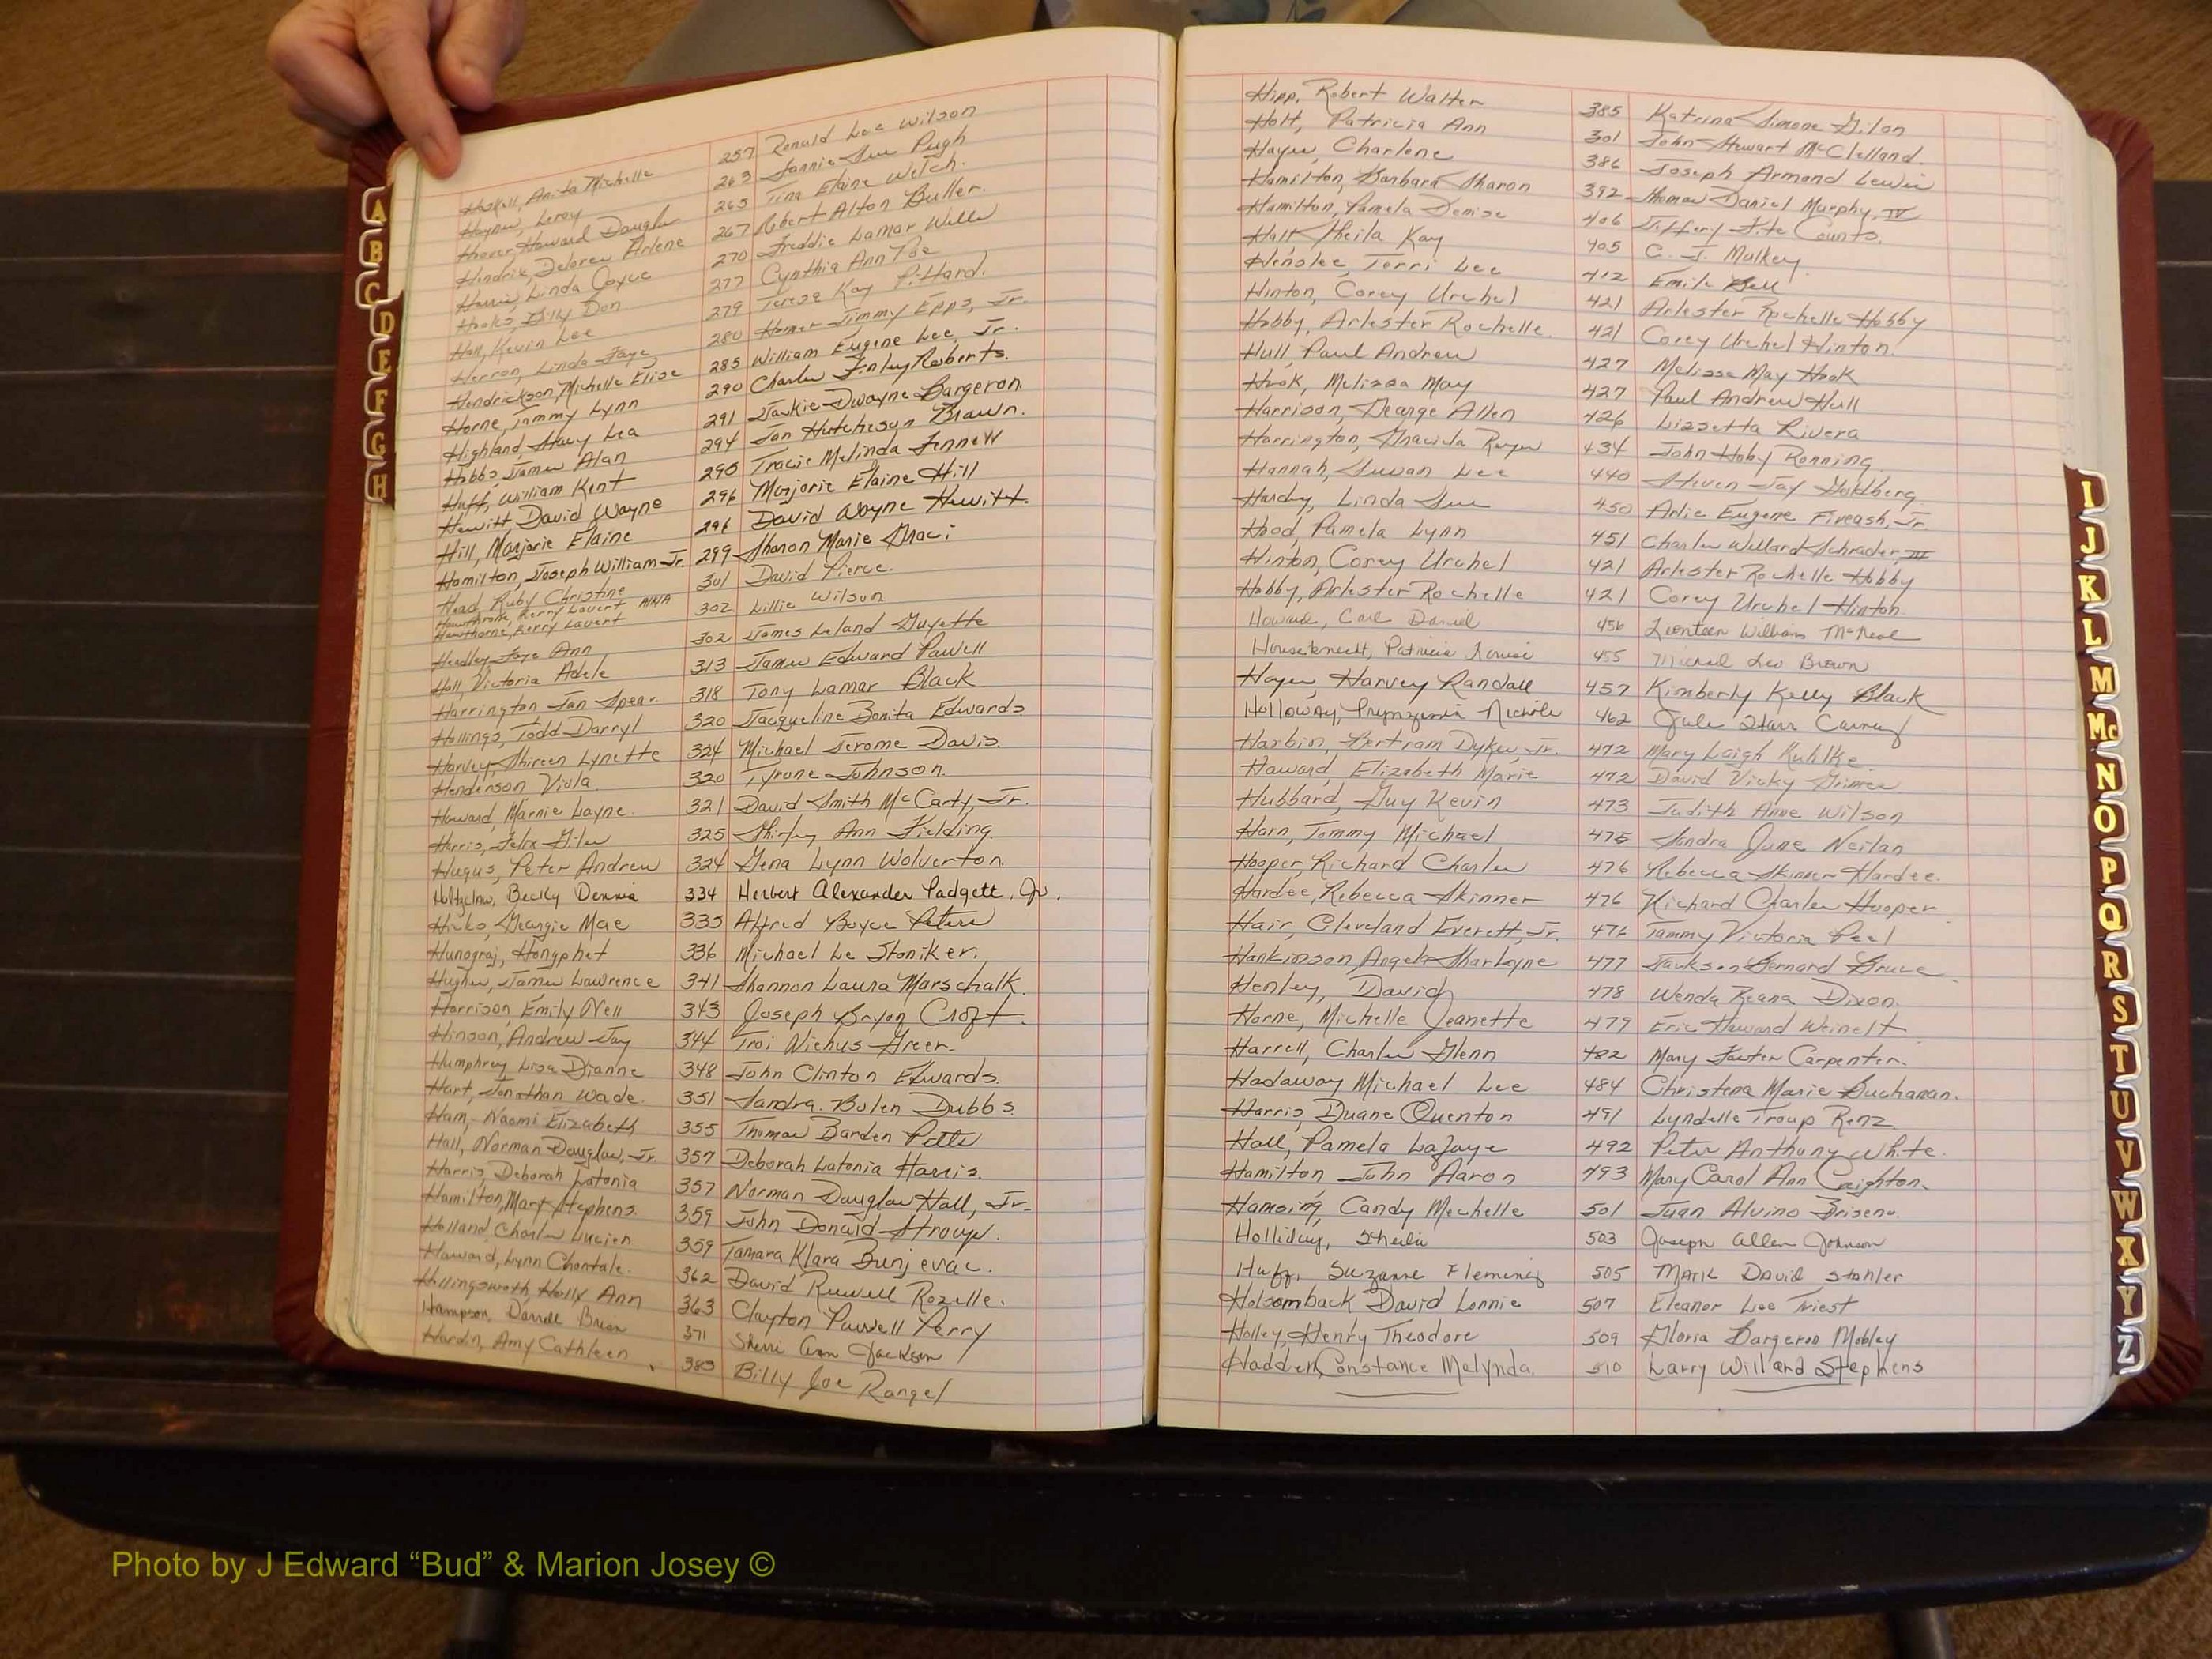 Haskell, Anita Michelle 257 Ronald Lee Wilson
Haynes, Leroy 263 Fannie Sue Pugh
Hoover, Howard Douglas 265 Tina Elaine Welch.
Hendrix, Delores Arlene 267 Robert Alton Buller.
Harris, Linda Joyce 270 Freddie Lamar Wells
Hooks, Billy Don 277 Cynthia Ann Poe
Hall, Kevin Lee 279 Terese Kay Pittard.
Herron, Linda Faye 280 Homer Jimmy Epps, Jr.
Hendrickson, Michelle Elise 285 William Eugene Lee, Jr.
Horne, Tommy Lynn 290 Charles Finley Roberts.
Highland, Stacy Lea 291 Jackie Dwayne Bargeron.
Hobbs, James Alan 294 Jan Hutcheson Brown.
Huff, William Kent 295 Tracie Melinda Fennell
Hewitt, David Wayne 296 Marjorie Elaine Hill
Hill, Marjorie Elaine 296 David Wayne Hewitt.
Hamilton, Joseph William Jr. 299 Sharon Marie Graci
Head, Ruby Christine 301 David Pierce.
Hawthrone, Berry Lavert A/K/A
Hawthorne, Berry Lavert 302 Lillie Wilson
Headley, Faye Ann 302 James Leland Guyette
Hall, Victoria Adele 313 James Edward Powell
Harrington, Jan Spear 318 Tony Lamar Black
Hollings, Todd Darryl 320 Jacqueline Bonita Edwards
Harvey, Shireen Lynette 324 Michael Jerome Davis.
Henderson Viola. 320 Tyrone Johnson.
Howard, Marnie Layne. 321 David Smith McCarty, Jr.
Harris, Felix Giles 325 Shirley Ann Fielding
Hugus, Peter Andrew 324 Gena Lynn Wolverton.
Holtzclaw, Becky Dennis 334 Herbert Alexander Padgett, Jr.
Hicks, Georgie Mae 335 Alfred Boyce Peters
Hunograj, Hongphet 336 Michael Le Stoniker.
Hughes, James Lawrence 341 Shannon Laura Marschalk.
Harrison, Emily Nell 343 Joseph Bryon Croft.
Hinson, Andrew Jay 344 Troi Niehus Greer.
Humphrey Lisa Dianne 348 John Clinton Edwards.
Hart, Jonathan Wade. 351 Sandra Bolen Dubbs.
Ham, Naomi Elizabeth 355 Thomas Barden Potts
Hall, Norman Douglas, Jr. 357 Deborah Latonia Harris.
Harris, Deborah Latonia 357 Norman Douglas Hall, Jr.
Hamilton, Mary Stephens. 359 John Donald Stroup.
Holland, Charles Lucien 359 Tamara Klara Bunjevac.
Howard, Lynn Chontale. 362 David Russell Rozelle.
Hillingsworth, Holly Ann 363 Clayton Powell Perry
Hampson, Darrell Brian 371 Sherri Ann Jackson
Hardin, Amy Cathleen 383 Billy Joe Rangel
Hipp, Robert Walter 385 Katrina Simone Gilon
Holt, Patricia Ann 301 John Stewart McClelland.
Hayes, Charlene 386 Joseph Armond Lewis
Hamilton, Barbara Sharon 392 Thomas Daniel Murphy, IV
Hamilton, Pamela Denise 406 Jeffery Fite Counts.
Hall Sheila Kay 405 C. J. Mulkey.
Henslee, Terri Lee 412 Emile Bell
Hinton, Corey Urchel 421 Arlester Rochelle Hobby
Hobby, Arlester Rochelle. 421 Corey Urchel Hinton.
Hull, Paul Andrew 427 Melissa May Hook
Hook, Melissa May 427 Paul Andrew Hull
Harrison, George Allen 426 Lissetta Rivera
Harrington, Graciela Reyes 434 John Hoby Ronning
Hannah, Susan Lee 440 Steven Jay Goldberg.
Hardy, Linda Sue 450 Arlie Eugene Fireash, Jr.
Hood, Pamela Lynn 451 Charles Willard Schrader, III
Hinton, Corey Urchel 421 Arlester Rochelle Hobby
Hobby, Arlester Rochelle 421 Corey Urchel Hinton.
Howard, Carl Daniel 456 Williams McNeal
Houseknecht, Patricia Louise 455 Michael Leo Brown
Hayes, Harvey Randall 457 Kimberly Kelly Black
Holloway, Nichole 462 Starr
Harbin, Bertram Dykes, Jr. 472 Mary Leigh Kuhlke.
Howard, Elizabeth Marie 472 David Vicky Grimes
Hubbard, Guy Kevin 473 Judith Anne Wilson
Harn, Tommy Michael 475 Sandra June Neilan
Hooper, Richard Charles 476 Rebecca Skinner Hardee.
Hardee, Rebecca Skinner 476 Richard Charles Hooper
Hair, Cleveland Everett, Jr. 476 Tammy Victoria Peel
Hankinson, Angela Sharlayne 477 Jackson Bernard Bruce
Henley, David 478 Wenda Reana Dixon.
Horne, Michelle Jeanette 479 Eric Howard Weinelt
Harrell, Charles Glenn 482 Mary Foster Carpenter.
Hadaway Michael Lee 484 Christena Marie Buchanan.
Harris, Duane Quenton 491 Lyndelle Troup Renz.
Hall, Pamela LaJaye 492 Peter Anthony White.
Hamilton John Aaron 493 Mary Carol Ann Creighton.
Hansing, Candy Mechelle 501 Juan Alvino Briseno.
Holliday, Sheila 503 Joseph Allen Johnson
Huff, Suzanne Fleming 505 Mark David Stahler
Holsomback David Lonnie 507 Eleanor Lee Triest
Holley, Henry Theodore 509 Gloria Bargeron Mobley
Hadden, Constance Melynda. 510 Larry Willard Stephens
A
B
C
D
E
F
G
H
I
J
K
L
M
Mc
N
O
P
Q
R
S
T
U
V
W
X
Y
Z
Photo by J Edward “Bud” & Marion Josey ©